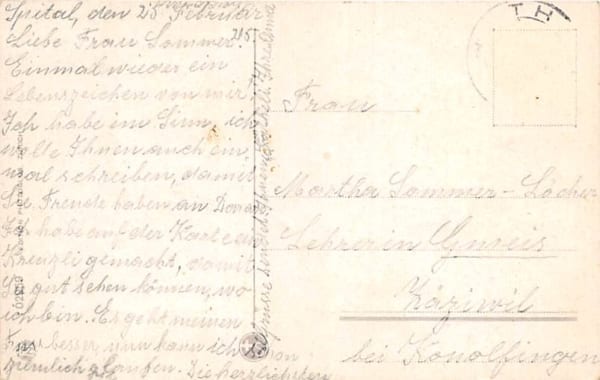 Spital, den 25 Februar
Liebe Frau Sommer!
Einmal wieder ein
Lebenszeichen von mir.
Ich habe im Sinn, ich
wolle Ihnen auch ein
mal schreiben, damit
Sie Freude haben an
Ich habe auf der Karte ein
Kreuzli gemacht, damit
Sie gut sehen können, wo
ich bin. Es geht meinen
besser, nun kann ich schon
ziemlich Die herzlichsten
Grüsse sendet Ihnen
TH
Frau
Martha Sommer-Locher
Lehrerin Gmeis
Zäziwil
bei Konolfingen